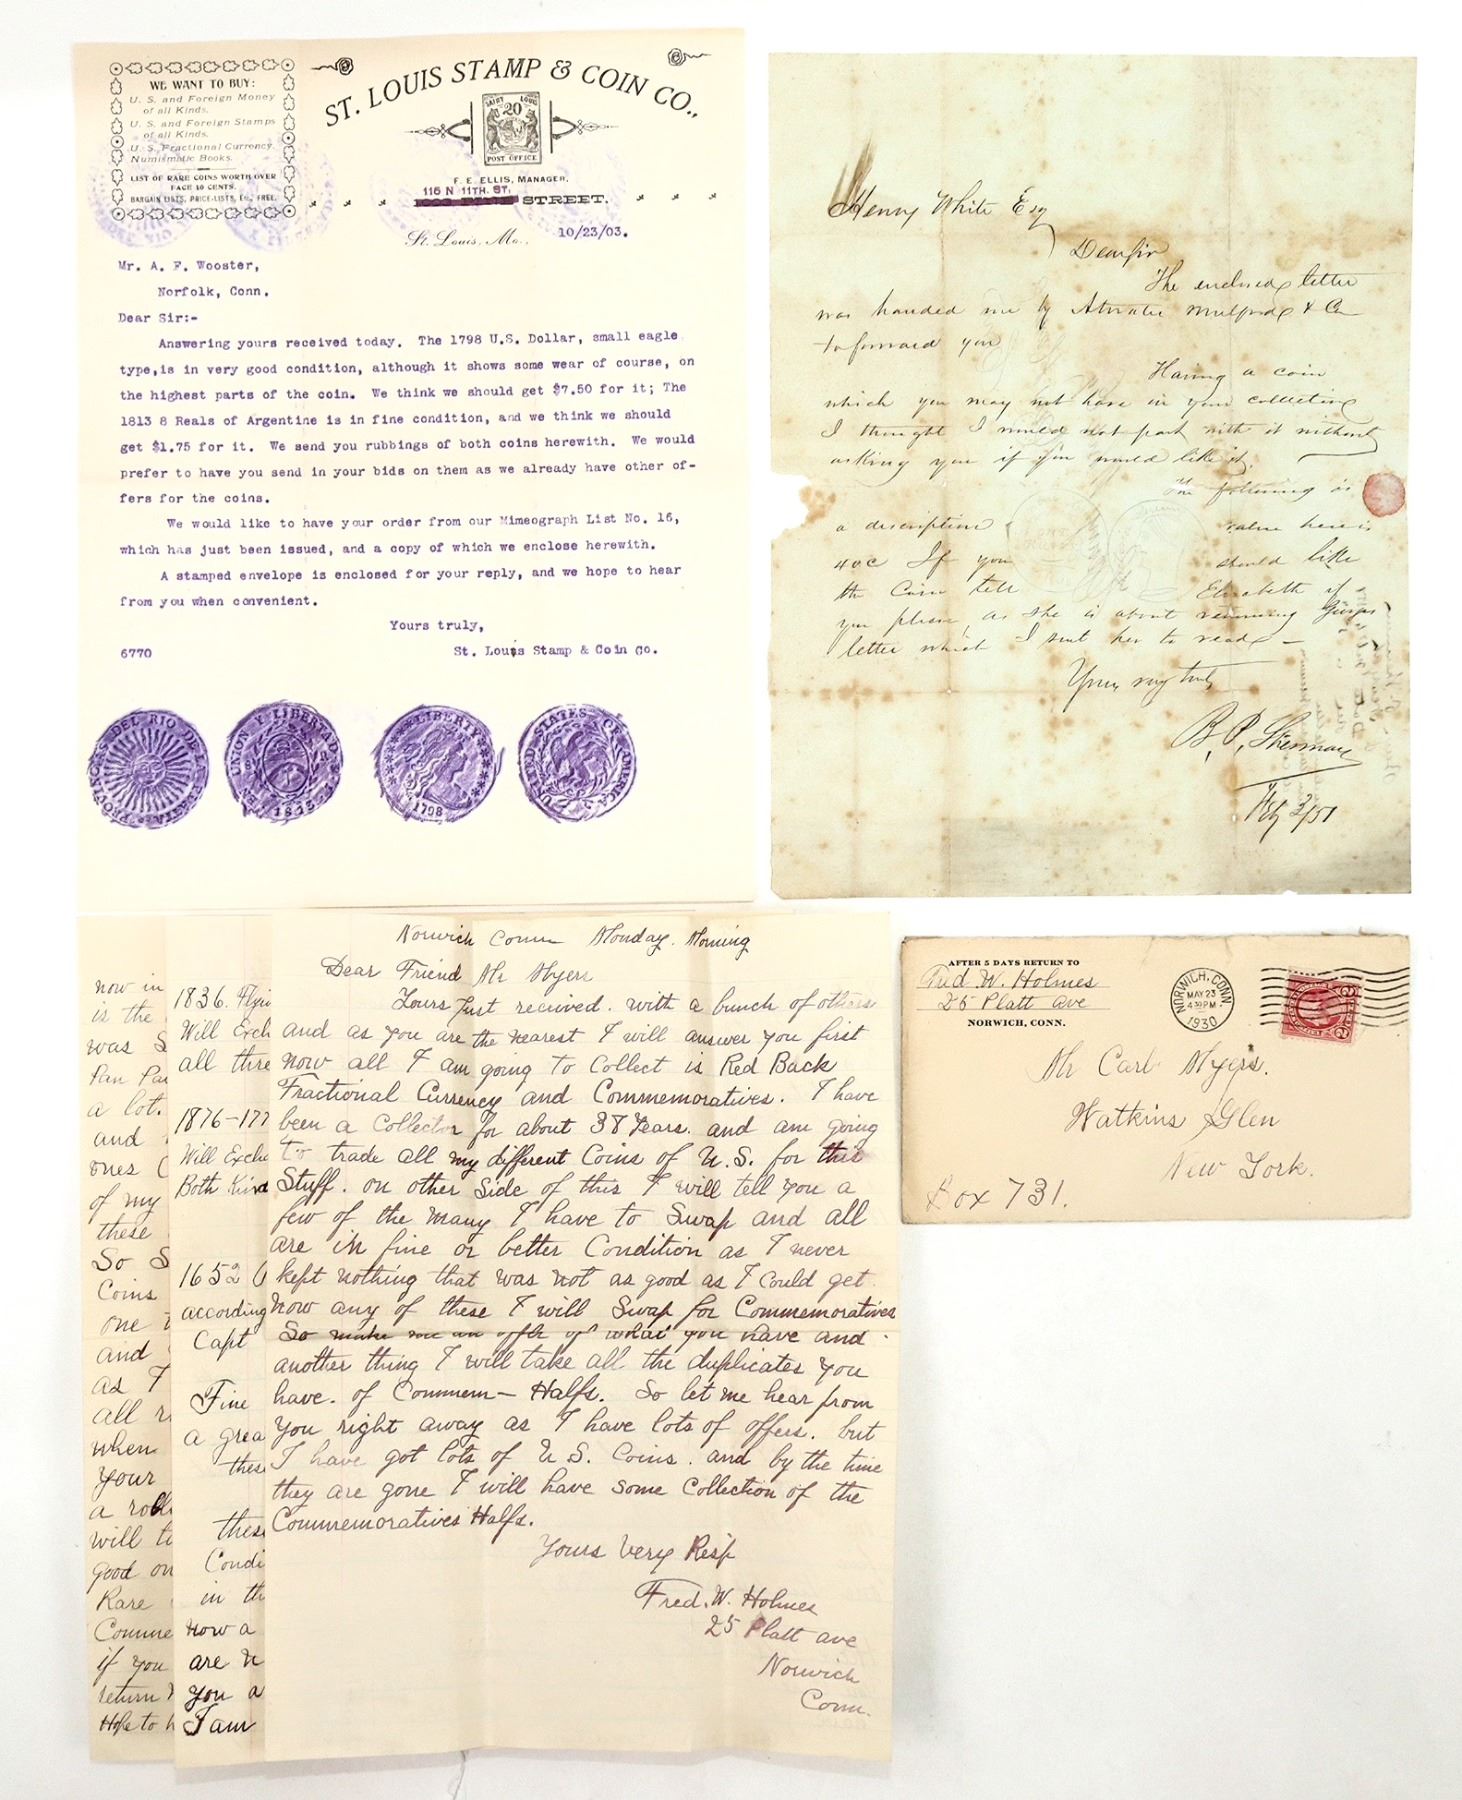 WE WANT TO BUY:
U. S. and Foreign Money
of all Kinds.
U. S. and Foreign Stamps
of all Kinds.
U. S. Fractional Currency
Numismatic Books.
LIST OF RARE COINS WORTH OVER
FACE 10 CENTS.
BARGAIN LISTS, PRICE-LISTS, Etc., FREE.
ST. LOUIS STAMP & COIN CO.,
SAINT LOUIS
20
POST OFFICE
F. E. ELLIS, MANAGER.
115 N 11TH. ST.
STREET.
St. Louis, Mo., 10/23/03.
Mr. A. F. Wooster,
Norfolk, Conn.
Dear Sir:-
Answering yours received today. The 1798 U.S. Dollar, small eagle
type,is in very good condition, although it shows some wear of course, on
the highest parts of the coin. We think we should get $7.50 for it; The
1813 8 Reals of Argentine is in fine condition, and we think we should
get $1.75 for it. We send you rubbings of both coins herewith. We would
prefer to have you send in your bids on them as we already have other of-
fers for the coins.
We would like to have your order from our Mimeograph List No. 16,
which has just been issued, and a copy of which we enclose herewith.
A stamped envelope is enclosed for your reply, and we hope to hear
from you when convenient.
Yours truly,
6770 St. Louis Stamp & Coin Co.
PROVINCIAS DEL RIO DE LA PLATA
EN UNION Y LIBERTAD
1813
LIBERTY
1798
UNITED STATES OF AMERICA
Henry White Esq
Dear sir
The enclosed letter
was handed me by Atwater Mulford & Co
to forward you
Having a coin
which you may not have in your collection
I thought I would not part with it without
asking you if you would like it.
The following is
a description value here is
40c If you should like
the Coin tell Elizabeth if
you please, as she is about returning
letter which I sent her to read —
Yours very truly
B. P. Sherman
Feby 3/51
Norwich Conn Monday. Morning
Dear Friend Mr Myers
Yours Just recieved. with a bunch of others
and as you are the nearest I will answer you first
now all I am going to Collect is Red Back
Fractional Currency and Commemoratives. I have
been a Collector for about 38 Years. and am going
to trade all my different Coins of U.S. for this
Stuff. on other Side of this I will tell you a
few of the many I have to Swap and all
are in fine or better Condition as I never
kept nothing that was not as good as I could get.
Now any of these I will Swap for Commemoratives
So make me an offer of what you have and
another thing I will take all the duplicates you
have. of Commem— Halfs. So let me hear from
you right away as I have lots of offers. but
I have got lots of U S. Coins. and by the time
they are gone I will have some Collection of the
Commemoratives Halfs.
Yours Very Resp
Fred. W. Holmes
25 Platt ave
Norwich
Conn.
now in
is the
was
Pan
a lot.
and
ones
of my
these
So
Coins
one
and
as I
all
when
your
a
will
good on
Rare
Comme
if you
return
Hope to h
1836.
Will Exch
all thre
1876-177
Will Exch
Both Kind
1652
according
Capt
Fine
a grea
thes
thes
Condi
in th
now a
are
you a
I am
AFTER 5 DAYS RETURN TO
Fred. W. Holmes
25 Platt Ave
NORWICH, CONN.
NORWICH, CONN.
MAY 23
4 30 PM
1930
Mr Carl Myers.
Watkins Glen
New York.
Box 731.